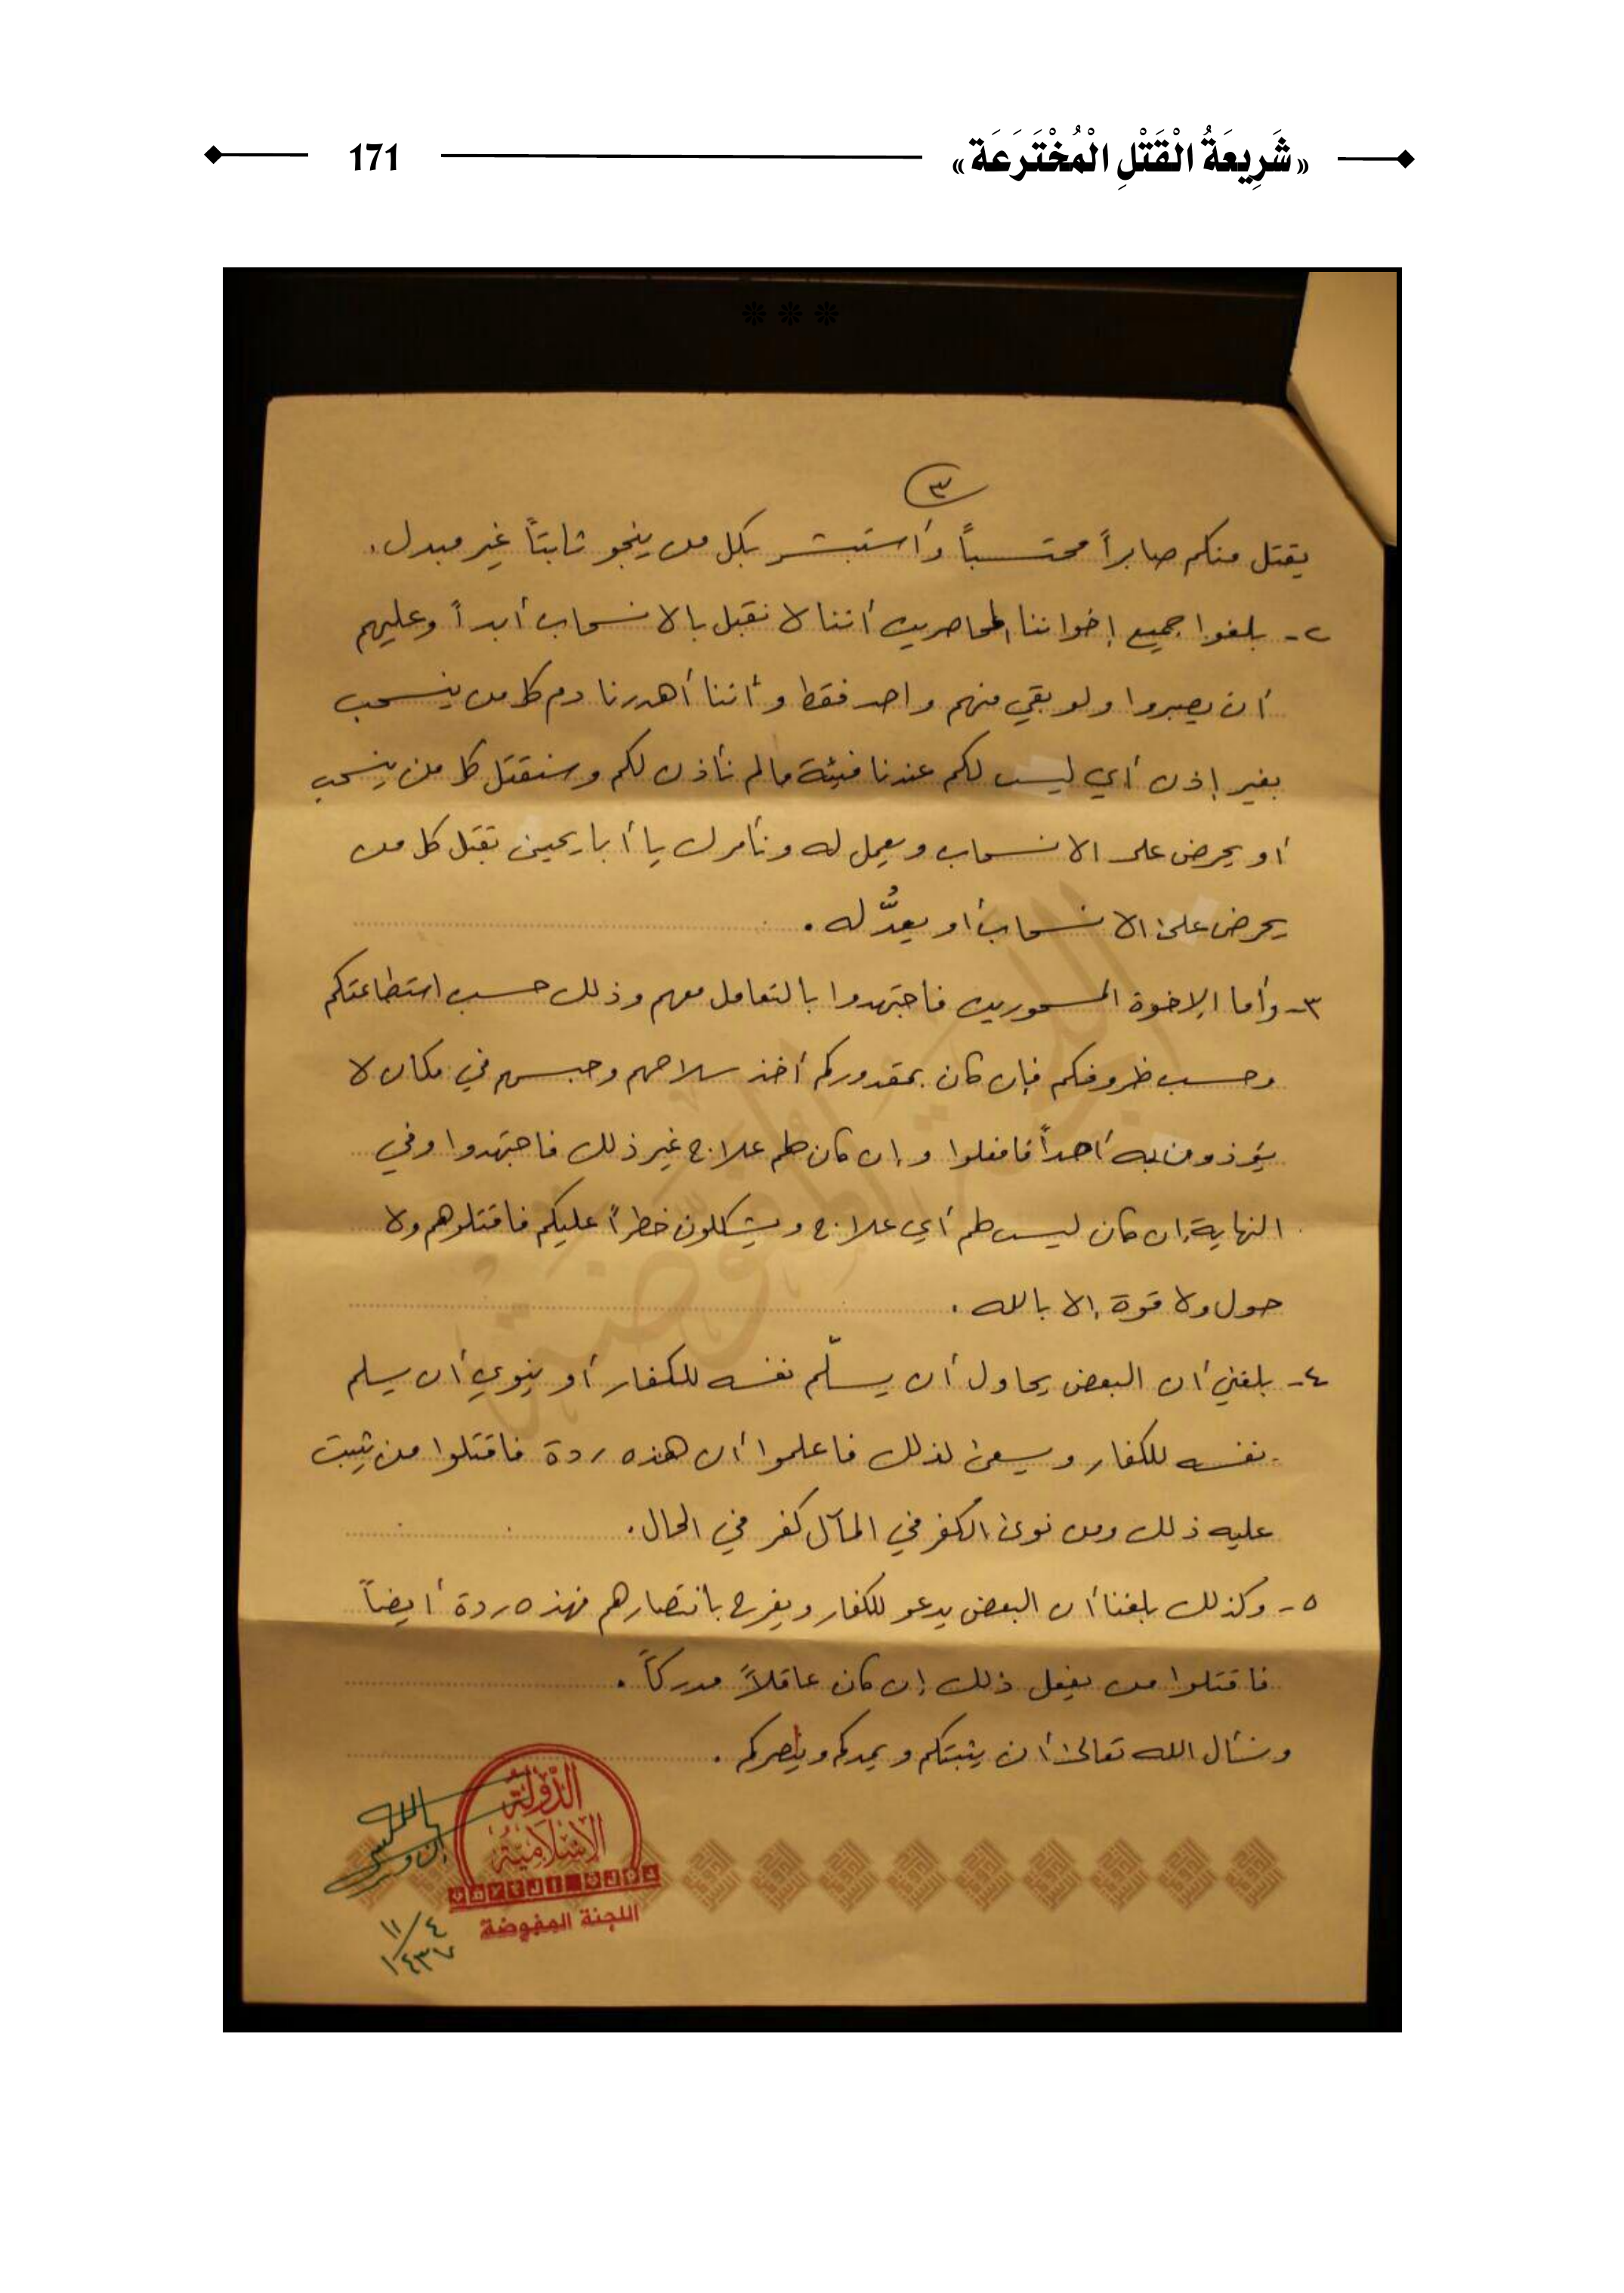 «شَرِيعَةُ الْقَتْلِ الْمُخْتَرَعَة» 171
٣
يقتل منكم صابراً محتسباً وأستبشر بكل من ينجو ثابتاً غير مبدل.
٢- بلغوا جميع إخواننا المحاصرين أننا لا نقبل بالانسحاب أبداً وعليهم
أن يصبروا ولو بقي منهم واحد فقط وأننا أهدرنا دم كل من ينسحب
بغير إذن أي ليست لكم عندنا فيئة مالم نأذن لكم وسنقتل كل من ينسحب
أو يحرض على الانسحاب ويعمل له ونأمرك يا أبا بقتل كل من
يحرض على الانسحاب أو يعدُّ له.
٣- وأما الإخوة المسحورين فاجتهدوا بالتعامل معهم وذلك حسب استطاعتكم
وحسب ظروفكم فإن كان بمقدوركم أخذ سلاحهم وحبسهم في مكان لا
يؤذون به أحداً فافعلوا وإن كان لهم علاج غير ذلك فاجتهدوا وفي
النهاية إن كان ليس لهم أي علاج ويشكلون خطراً عليكم فاقتلوهم ولا
حول ولا قوة إلا بالله.
٤- بلغني أن البعض يحاول أن يسلّم نفسه للكفار أو ينوي أن يسلم
نفسه للكفار ويسعى لذلك فاعلموا أن هذه ردة فاقتلوا من يثبت
عليه ذلك ومن نوى الكفر في المآل كفر في الحال.
٥- وكذلك بلغنا أن البعض يدعو للكفار ويفرح بانتصارهم فهذه ردة أيضاً
فاقتلوا من يفعل ذلك إن كان عاقلاً مدركاً.
ونسأل الله تعالى أن يثبتكم ويمدكم وينصركم.
الدولة
الإسلامية
اللجنة المفوضة
٤/١١
١٤٣٧
اللجنة المفوضة